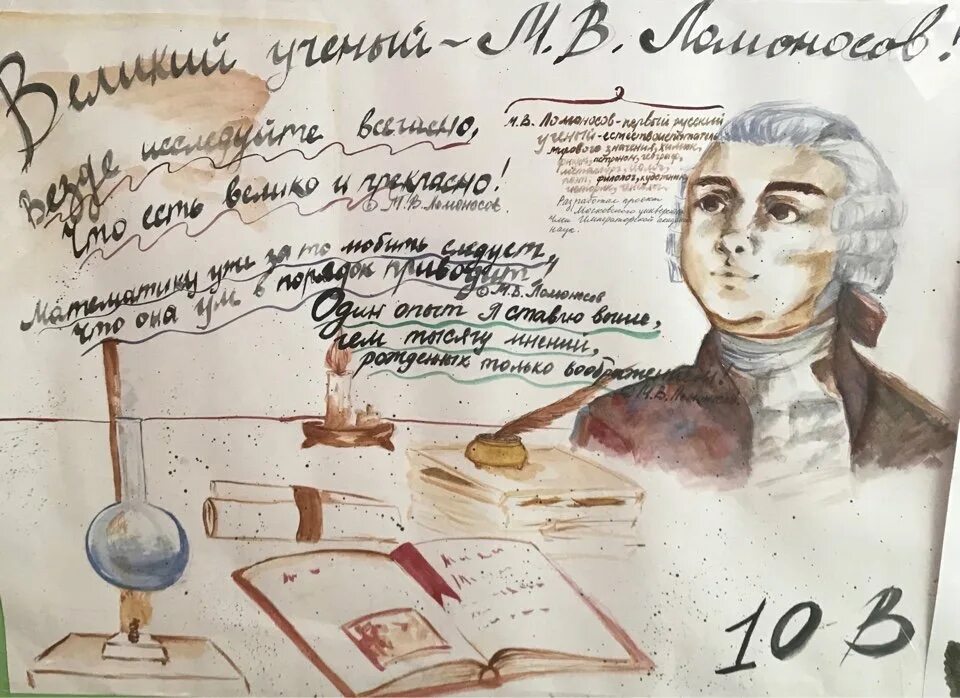 Великий ученый - М. В. Ломоносов!
Везде исследуйте всечасно,
Что есть велико и прекрасно!
© М.В. Ломоносов.
М.В. Ломоносов - первый русский
ученый - естествоиспытатель
мирового значения, химик,
физик, астроном, географ,
металлург, геолог,
поэт, филолог, художник,
историк,
Разработал проект
Московского университета
Член Императорской академии
наук.
Математику уже за то любить следует,
что она ум в порядок приводит!
© М.В. Ломоносов
Один опыт я ставлю выше,
чем тысячу мнений,
рожденных только воображением!
© М.В. Ломоносов.
10 В